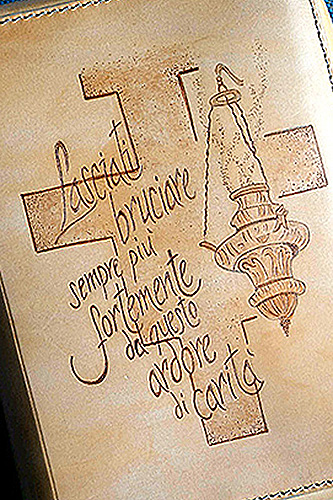 Lasciati
bruciare
sempre più
fortemente
da questo
ardore
di carità